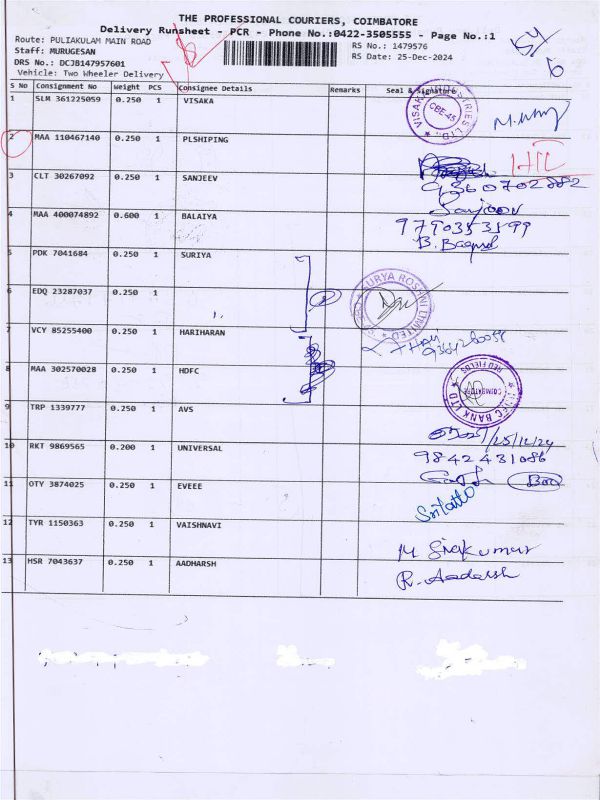 THE PROFESSIONAL COURIERS, COIMBATORE
Delivery Runsheet - PCR - Phone No.:0422-3505555 - Page No.:1
Route: PULIAKULAM MAIN ROAD
RS No.: 1479576
Staff: MURUGESAN
RS Date: 25-Dec-2024
DRS No.: DCJB147957601
Vehicle: Two Wheeler Delivery
S No Consignment No Weight PCS Consignee Details Remarks Seal & Signature
1 SLM 361225059 0.250 1 VISAKA
2 MAA 110467140 0.250 1 PLSHIPING
3 CLT 30267092 0.250 1 SANJEEV 9360702882
Sanjeev
4 MAA 400074892 0.600 1 BALAIYA 9790353599
5 PDK 7041684 0.250 1 SURIYA
6 EDQ 23287037 0.250 1
SURYA ROSHNI LIMITED
7 VCY 85255400 0.250 1 HARIHARAN
8 MAA 302570028 0.250 1 HDFC
HDFC BANK LTD
RED FIELDS
COIMBATORE
9 TRP 1339777 0.250 1 AVS
25/12/24
10 RKT 9869565 0.200 1 UNIVERSAL 9842431086
11 OTY 3874025 0.250 1 EVEEE
12 TYR 1150363 0.250 1 VAISHNAVI
M Sivakumar
13 HSR 7043637 0.250 1 AADHARSH R. Aadarsh